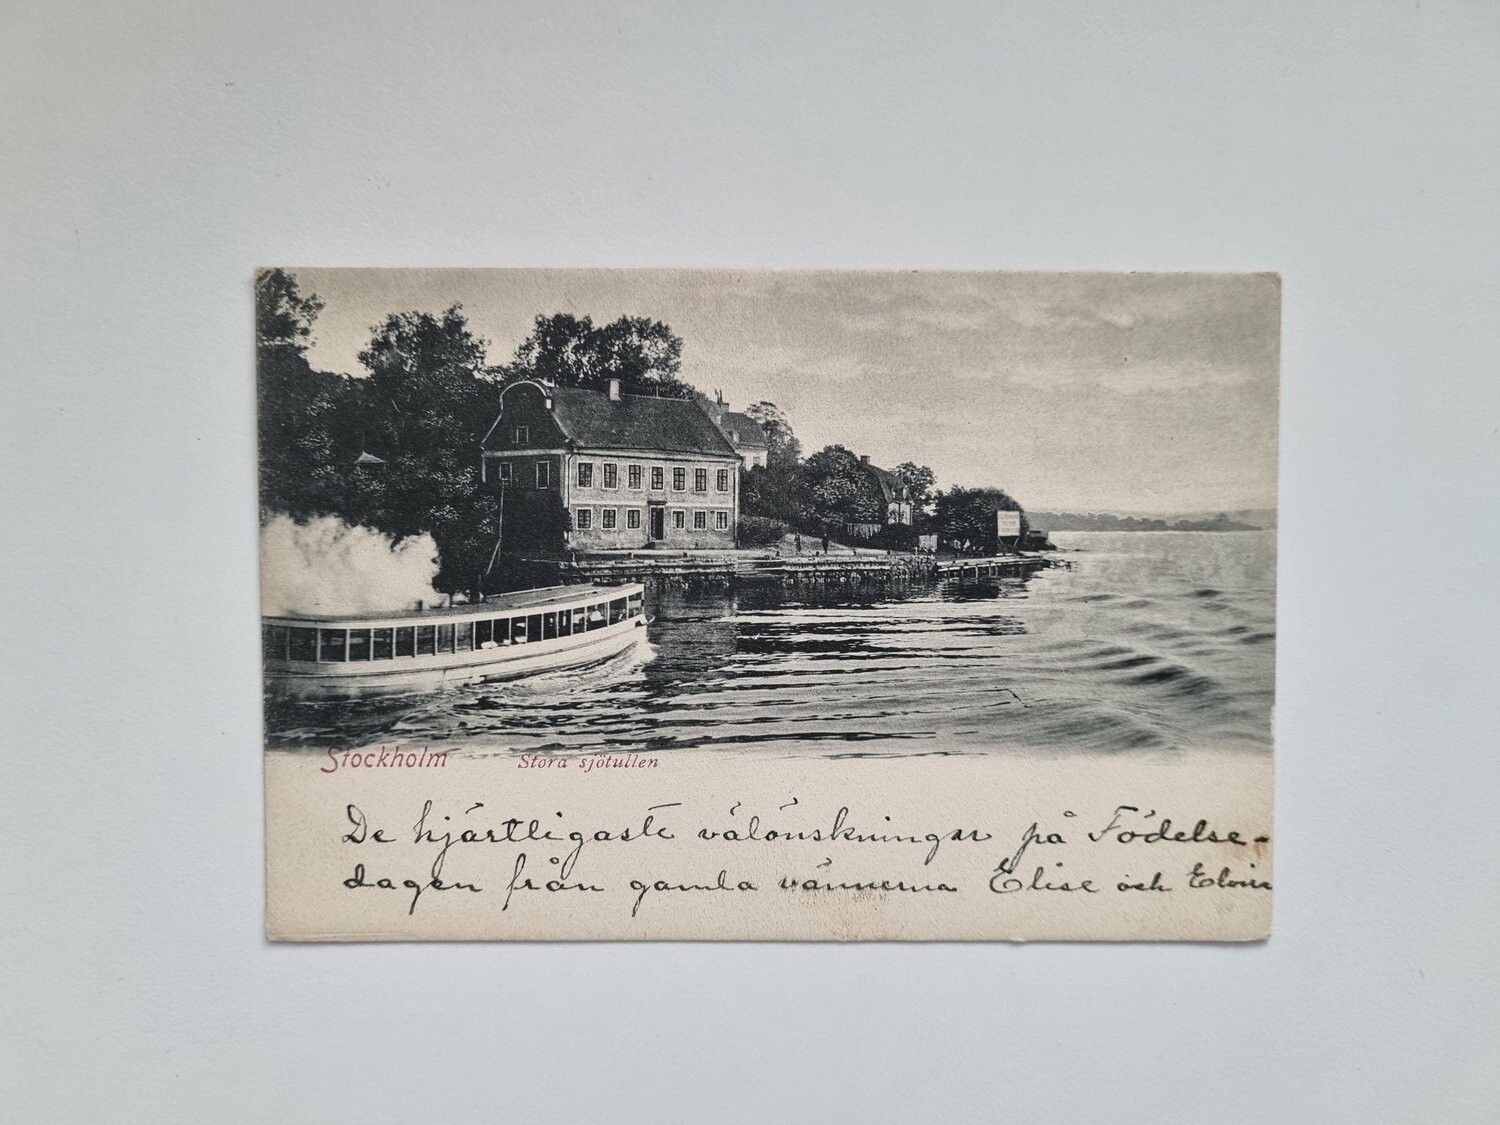 Stockholm Stora sjötullen
De hjärtligaste välönskningar på Födelse-
dagen från gamla vännerna Elise och